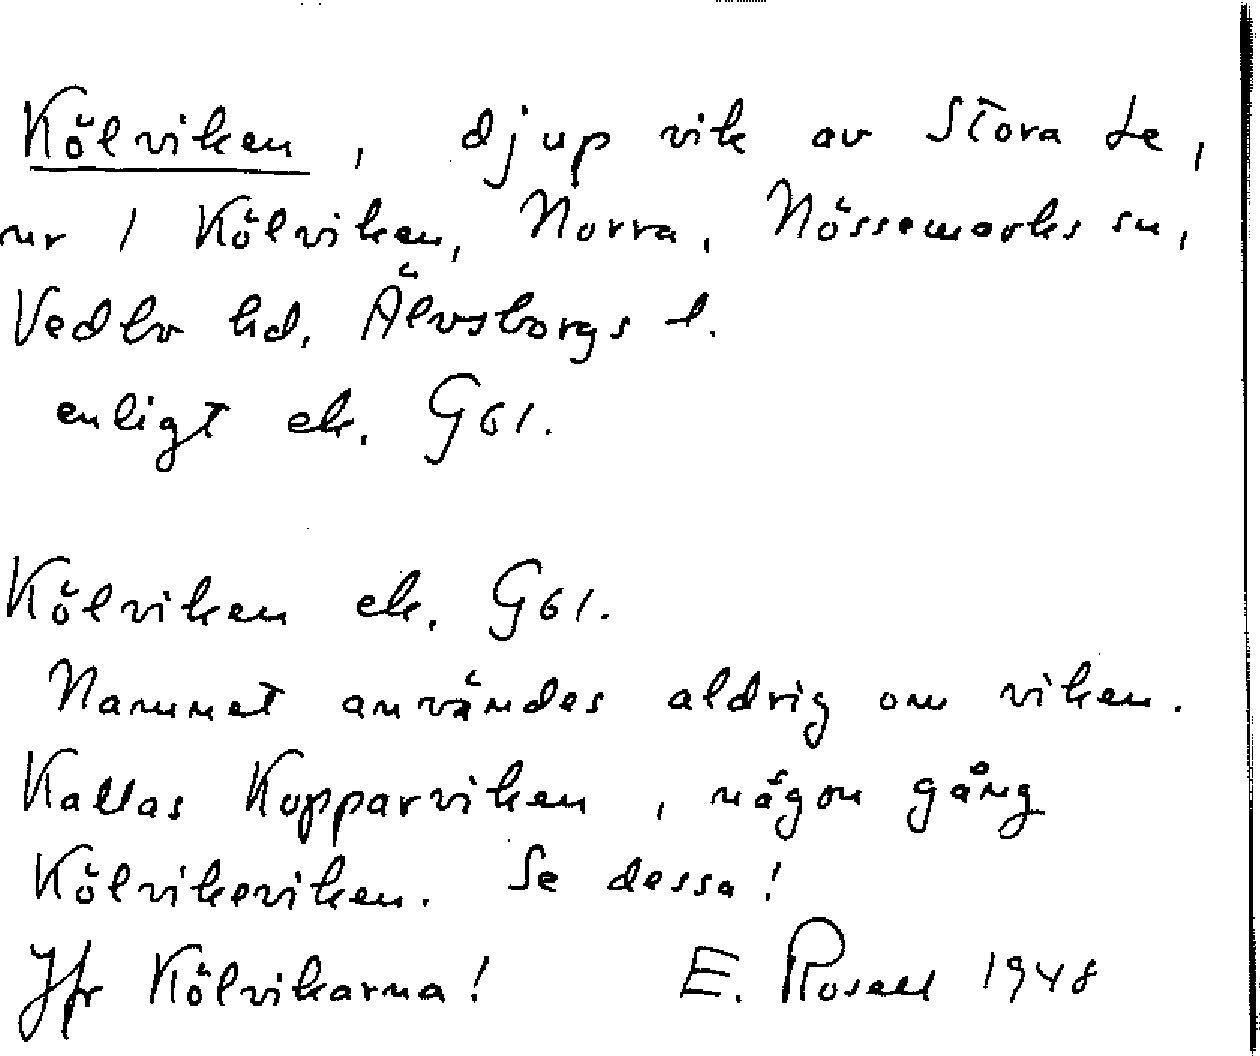 Kölviken, djup vik av Stora Le,
nr 1 Kölviken, Norra, Nössemarks sn,
Vedbo hd, Älvsborgs l.
enligt ek. G61.
Kölviken ek. G61.
Namnet användes aldrig om viken.
Kallas Kopparviken, någon gång
Kölvikeviken. Se dessa!
Jfr Kölvikarna! E. Rosell 1948